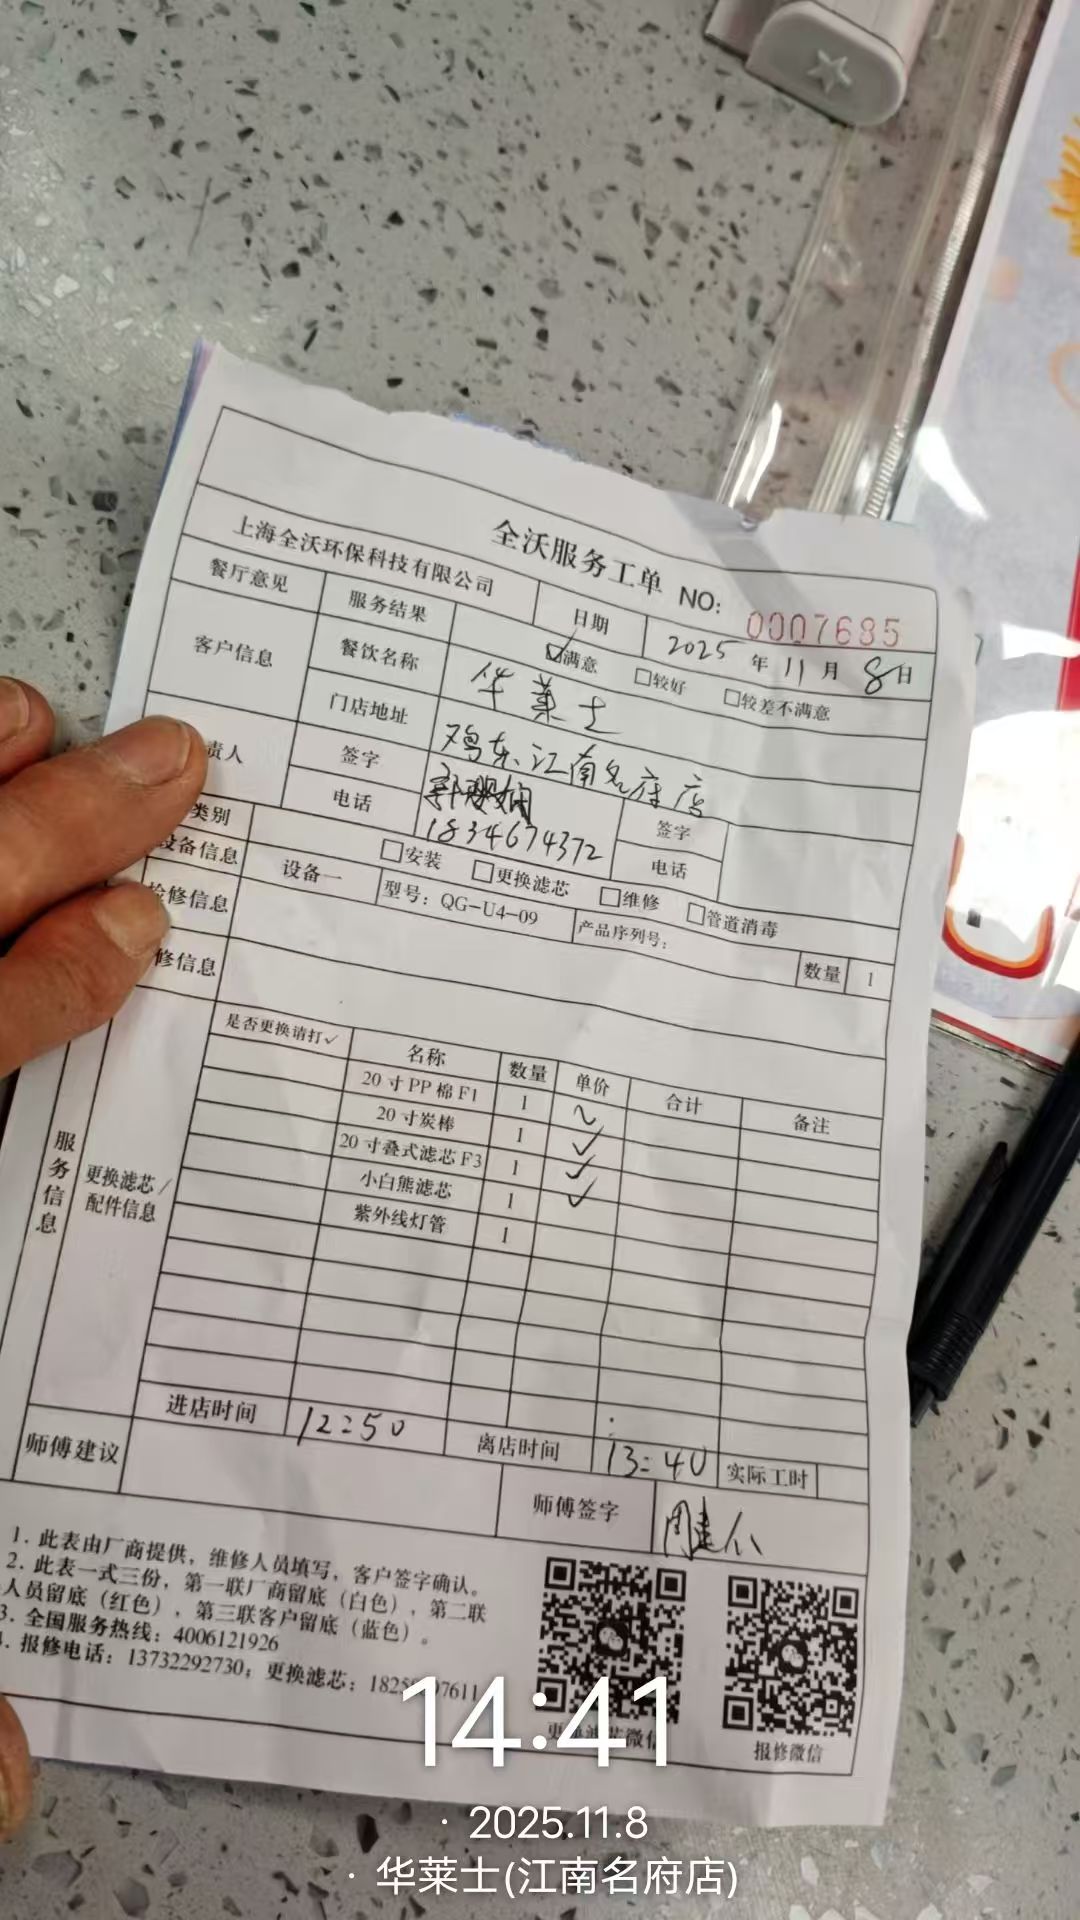 全沃服务工单 NO: 0007685
上海全沃环保科技有限公司 日期 2025 年 11 月 8 日
餐厅意见 服务结果 ☑满意 □较好 □较差不满意
客户信息 餐饮名称 华莱士
门店地址 鸡东江南名府店
责人 签字 签字
电话 1834674372 电话
类别 □安装 □更换滤芯 □维修 □管道消毒
设备信息 设备一 型号: QG-U4-09 产品序列号: 数量 1
检修信息
修信息
服务信息 更换滤芯/配件信息
是否更换请打✓ 名称 数量 单价 合计 备注
20寸PP棉F1 1 ✓
20寸炭棒 1 ✓
20寸叠式滤芯F3 1 ✓
小白熊滤芯 1 ✓
紫外线灯管 1
进店时间 12:50 离店时间 13:40 实际工时
师傅建议 师傅签字 周建
1. 此表由厂商提供，维修人员填写，客户签字确认。
2. 此表一式三份，第一联厂商留底（白色），第二联
人员留底（红色），第三联客户留底（蓝色）。
3. 全国服务热线：4006121926
4. 报修电话：13732292730；更换滤芯：
更换滤芯微信 报修微信
14:41
· 2025.11.8
· 华莱士(江南名府店)